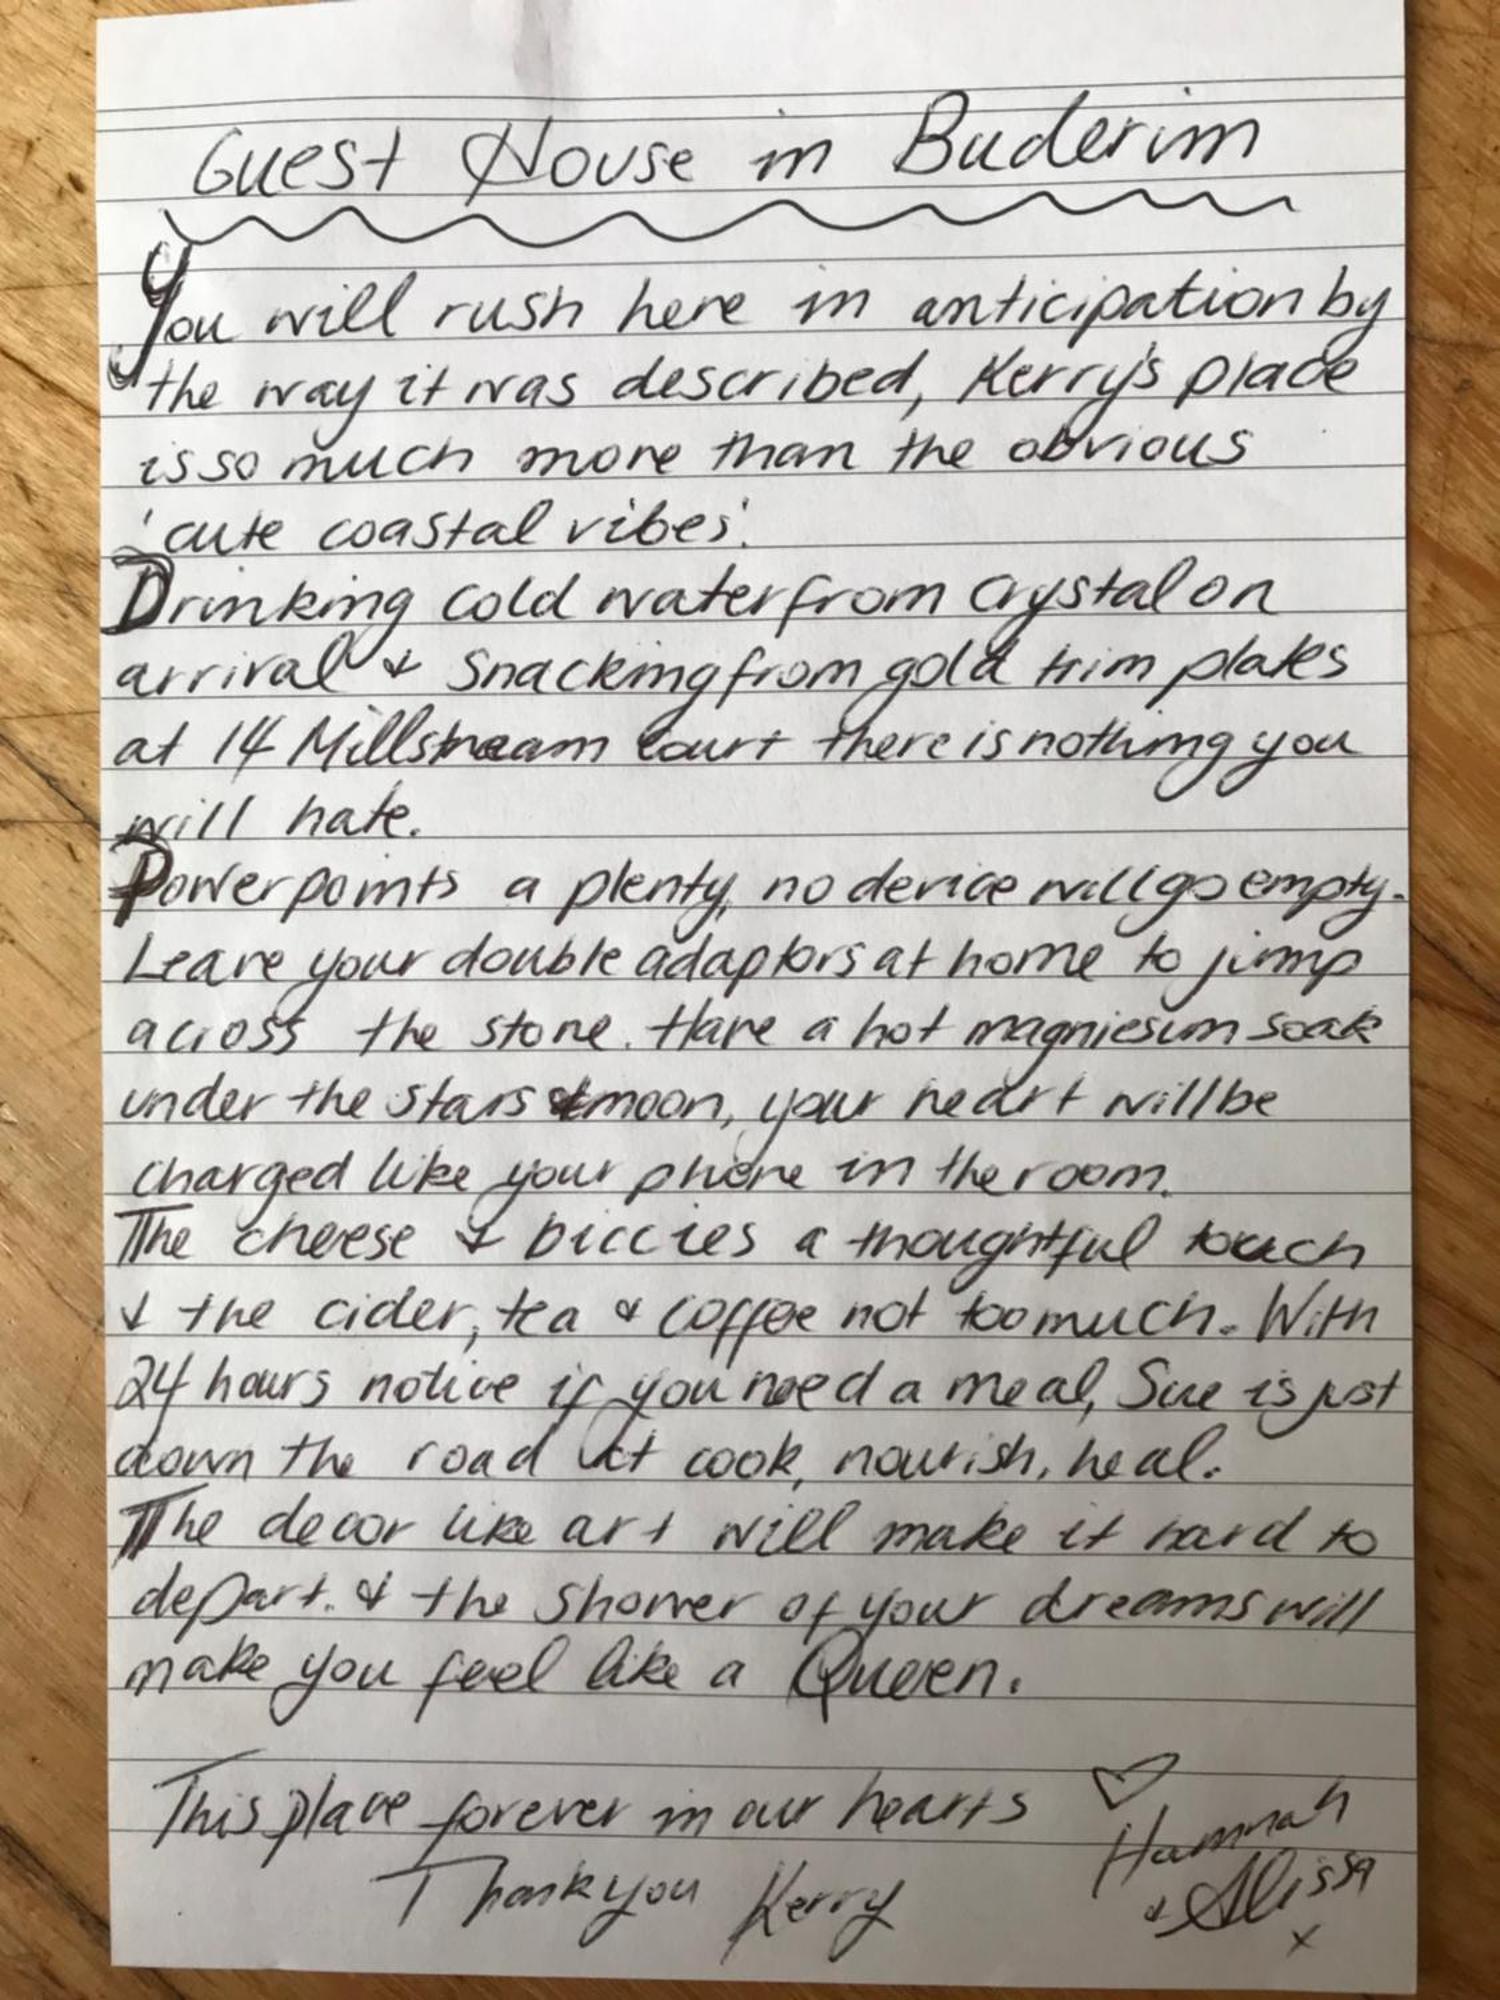 Guest House in Buderim
You will rush here in anticipation by
the way it was described, Kerry's place
is so much more than the obvious
'cute coastal vibes'.
Drinking cold water from crystal on
arrival & snacking from gold trim plates
at 14 Millstream Court there is nothing you
will hate.
Powerpoints a plenty, no device will go empty.
Leave your double adaptors at home to jump
across the stone. Have a hot magniesum soak
under the stars & moon, your heart will be
charged like your phone in the room.
The cheese & biccies a thoughtful touch
& the cider, tea & coffee not too much. With
24 hours notice if you need a meal, Sue is just
down the road to cook, nourish, heal.
The decor like art will make it hard to
depart. & the shower of your dreams will
make you feel like a Queen.
This place forever in our hearts ♡
Hannah
Thank you Kerry
& Alissa
x